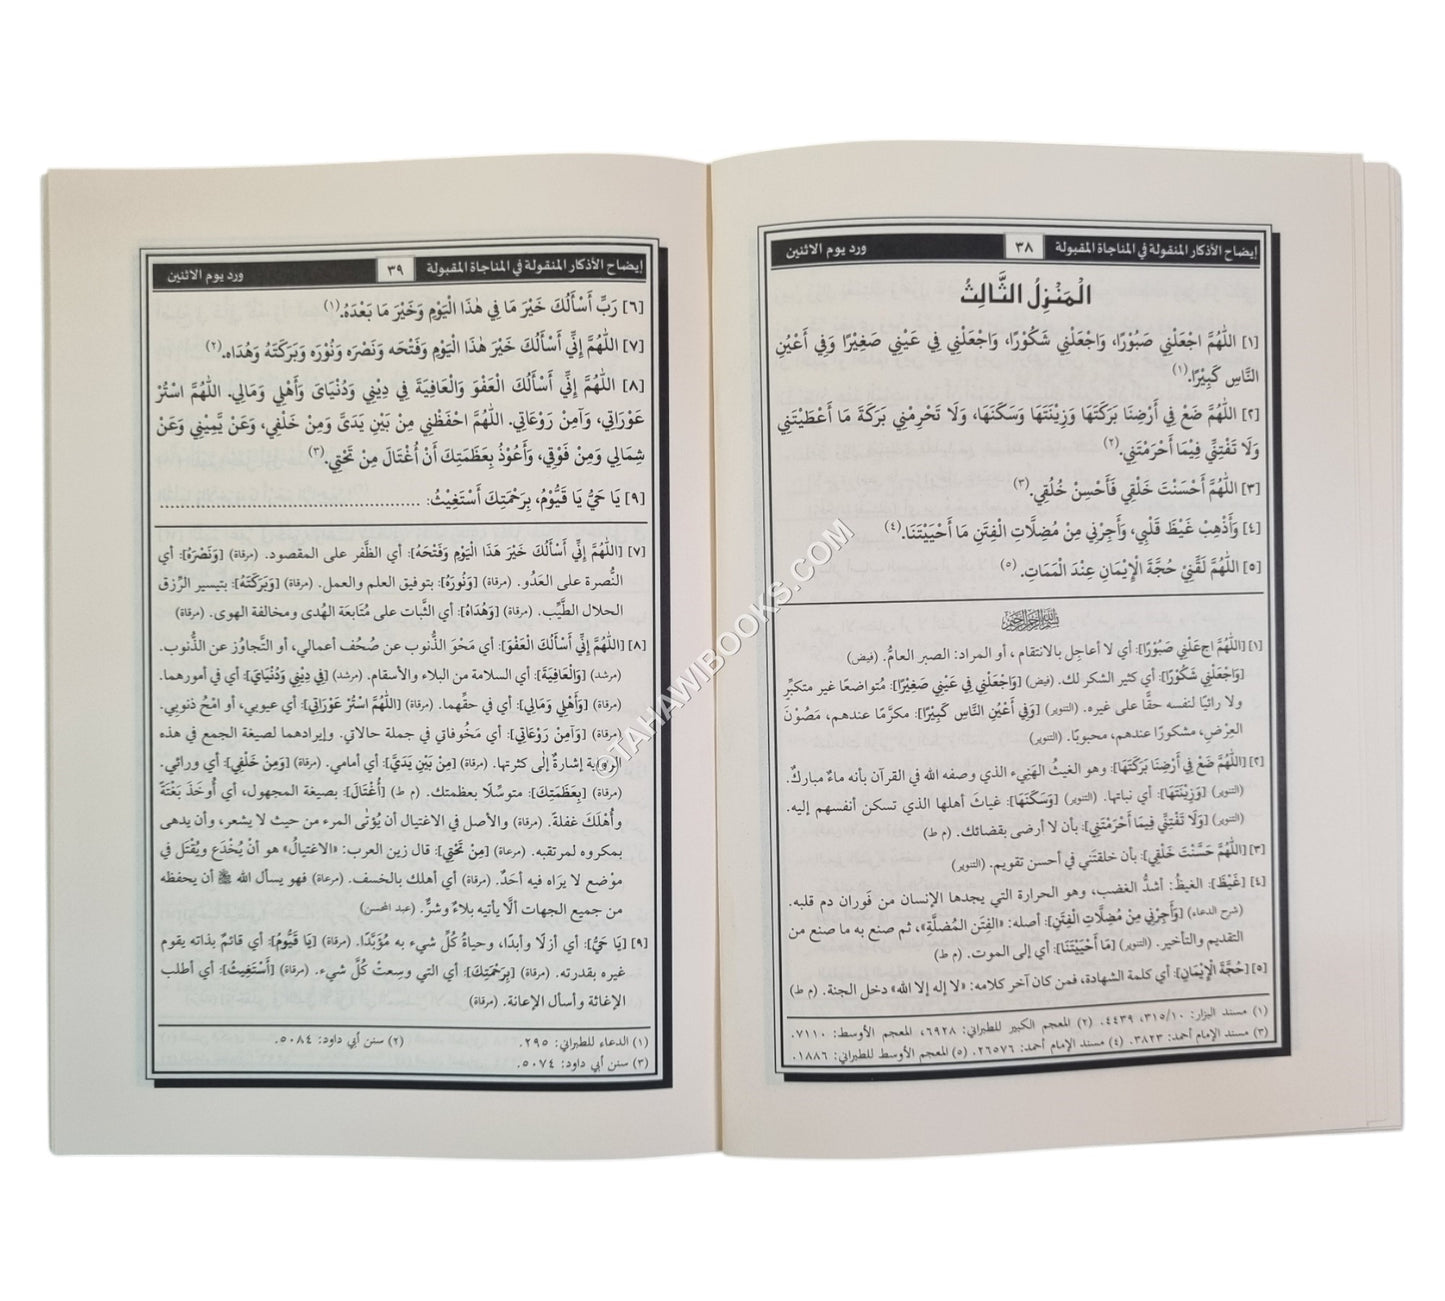 إيضاح الأذكار المنقولة في المناجاة المقبولة ٣٨ ورد يوم الاثنين
الْمَنْزِلُ الثَّالِثُ
[١] اللّٰهُمَّ اجْعَلْنِي صَبُوْرًا، وَاجْعَلْنِي شَكُوْرًا، وَاجْعَلْنِي فِي عَيْنِي صَغِيْرًا وَفِي أَعْيُنِ
النَّاسِ كَبِيْرًا.(١)
[٢] اللّٰهُمَّ ضَعْ فِي أَرْضِنَا بَرَكَتَهَا وَزِيْنَتَهَا وَسَكَنَهَا، وَلَا تَحْرِمْنِي بَرَكَةَ مَا أَعْطَيْتَنِي
وَلَا تَفْتِنِّي فِيْمَا أَحْرَمْتَنِي.(٢)
[٣] اللّٰهُمَّ أَحْسَنْتَ خَلْقِي فَأَحْسِنْ خُلُقِي.(٣)
[٤] وَأَذْهِبْ غَيْظَ قَلْبِي، وَأَجِرْنِي مِنْ مُضِلَّاتِ الْفِتَنِ مَا أَحْيَيْتَنَا.(٤)
[٥] اللّٰهُمَّ لَقِّنِّيْ حُجَّةَ الْإِيْمَانِ عِنْدَ الْمَمَاتِ.(٥)
بسم الله الرحمن الرحيم
[١] [اللّٰهُمَّ اجْعَلْنِي صَبُوْرًا]: أي لا أعاجِل بالانتقام، أو المراد: الصبر العامُّ. (فيض)
[وَاجْعَلْنِي شَكُوْرًا]: أي كثير الشكر لك. (فيض) [وَاجْعَلْنِي فِي عَيْنِي صَغِيْرًا]: مُتواضعًا غير متكبِّرٍ
ولا رائيًا لنفسه حقًّا على غيره. (التنوير) [وَفِي أَعْيُنِ النَّاسِ كَبِيْرًا]: مكرَّمًا عندهم، مَصُوْنَ
العِرْضِ، مشكورًا عندهم، محبوبًا. (التنوير)
[٢] [اللّٰهُمَّ ضَعْ فِي أَرْضِنَا بَرَكَتَهَا]: وهو الغيثُ الهَنِيء الذي وصفه الله في القرآن بأنه ماءٌ مباركٌ.
(التنوير) [وَزِيْنَتَهَا]: أي نباتها. (التنوير) [وَسَكَنَهَا]: غياثَ أهلها الذي تسكن أنفسهم إليه.
(التنوير) [وَلَا تَفْتِنِّي فِيمَا أَحْرَمْتَنِي]: بأن لا أرضى بقضائك. (م ط)
[٣] [اللّٰهُمَّ حَسَّنْتَ خَلْقِي]: بأن خلقتَني في أحسن تقويم. (التنوير)
[٤] [غَيْظَ]: الغيظُ: أشدُّ الغضب، وهو الحرارة التي يجدها الإنسان من فَوران دم قلبه.
(شرح الدعاء) [وَأَجِرْنِي مِنْ مُضِلَّاتِ الْفِتَنِ]: أصله: «الفِتَن المُضلَّةِ»، ثم صنع به ما صنع من
التقديم والتأخير. (التنوير) [مَا أَحْيَيْتَنَا]: أي إلى الموت. (م ط)
[٥] [حُجَّةَ الْإِيْمَانِ]: أي كلمة الشهادة، فمن كان آخر كلامه: «لا إله إلا الله» دخل الجنة. (م ط)
(١) مسند البزار: ٣١٥/١٠، ٤٤٣٩. (٢) المعجم الكبير للطبراني: ٦٩٢٨، المعجم الأوسط: ٧١١٠.
(٣) مسند الإمام أحمد: ٣٨٢٣. (٤) مسند الإمام أحمد: ٢٦٥٧٦. (٥) المعجم الأوسط للطبراني: ١٨٨٦.
إيضاح الأذكار المنقولة في المناجاة المقبولة ٣٩ ورد يوم الاثنين
[٦] رَبِّ أَسْأَلُكَ خَيْرَ مَا فِي هٰذَا الْيَوْمِ وَخَيْرَ مَا بَعْدَهُ.(١)
[٧] اللّٰهُمَّ إِنِّي أَسْأَلُكَ خَيْرَ هٰذَا الْيَوْمِ وَفَتْحَه وَنَصْرَه وَنُوْرَه وَبَرَكَتَهُ وَهُدَاه.(٢)
[٨] اللّٰهُمَّ إِنِّي أَسْأَلُكَ الْعَفْوَ وَالْعَافِيَةَ فِي دِيْنِي وَدُنْيَايَ وَأَهْلِي وَمَالِي. اللّٰهُمَّ اسْتُرْ
عَوْرَاتِي، وَآمِنْ رَوْعَاتِي. اللّٰهُمَّ احْفَظْنِي مِنْ بَيْنِ يَدَيَّ وَمِنْ خَلْفِي، وَعَنْ يَّمِيْنِي وَعَنْ
شِمَالِي وَمِنْ فَوْقِي، وَأَعُوْذُ بِعَظَمَتِكَ أَنْ أُغْتَالَ مِنْ تَحْتِي.(٣)
[٩] يَا حَيُّ يَا قَيُّوْمُ، بِرَحْمَتِكَ أَسْتَغِيْثُ: ........................................
[٧] [اللّٰهُمَّ إِنِّي أَسْأَلُكَ خَيْرَ هَذَا الْيَوْمِ وَفَتْحَهُ]: أي الظَّفر على المقصود. (مرقاة) [وَنَصْرَهُ]: أي
النُّصرة على العَدُو. (مرقاة) [وَنُورَهُ]: بتوفيق العلم والعمل. (مرقاة) [وَبَرَكَتَهُ]: بتيسير الرِّزق
الحلال الطَّيِّب. (مرقاة) [وَهُدَاهُ]: أي الثَّبات على مُتَابعَة الهُدى ومخالفة الهوى. (مرقاة)
[٨] [اللّٰهُمَّ إِنِّي أَسْأَلُكَ الْعَفْوَ]: أي مَحْوَ الذُّنوب عن صُحُف أعمالي، أو التَّجاوُز عن الذُّنوب.
(مرشد) [وَالْعَافِيَةَ]: أي السلامة من البلاء والأسقام. (مرشد) [فِي دِيْنِي وَدُنْيَايَ]: أي في أمورهما.
(مرقاة) [وَأَهْلِي وَمَالِي]: أي في حقِّهما. (مرقاة) [اللّٰهُمَّ اسْتُرْ عَوْرَاتِي]: أي عيوبي، أو امْحُ ذنوبي.
(مرقاة) [وَآمِنْ رَوْعَاتِي]: أي مَخُوفاتي في جملة حالاتي. وإيرادهما لصيغة الجمع في هذه
الرواية إشارةٌ إلى كثرتها. (مرقاة) [مِنْ بَيْنِ يَدَيَّ]: أي أمامي. (مرقاة) [وَمِنْ خَلْفِي]: أي ورائي.
(مرقاة) [بِعَظَمَتِكَ]: متوسِّلًا بعظمتك. (م ط) [أُغْتَالَ]: بصيغة المجهول، أي أُوخَذَ بَغْتَةً
وأُهْلَكَ غفلةً. (مرقاة) والأصل في الاغتيال أن يُؤتَى المرء من حيث لا يشعر، وأن يدهى
بمكروه لمرتقبه. (مرعاة) [مِنْ تَحْتِي]: قال زين العرب: «الاغتيالُ» هو أنْ يُخْدَع ويُقْتَل في
موْضع لا يرَاه فيه أحَدٌ. (مرقاة) أي أهلك بالخسف. (مرعاة) فهو يسأل الله ﷻ أن يحفظه
من جميع الجهات ألّا يأتيه بلاءٌ وشرٌّ. (عبد المحسن)
[٩] [يَا حَيُّ]: أي أزلًا وأبدًا، وحياةُ كُلِّ شيء به مُؤبَّدًا. (مرقاة) [يَا قَيُّومُ]: أي قائمٌ بذاته يقوم
غيره بقدرته. (مرقاة) [بِرَحْمَتِكَ]: أي التي وسِعتْ كُلَّ شيء. (مرقاة) [أَسْتَغِيثُ]: أي أطلب
الإغاثة وأسأل الإعانة. (مرقاة)
(١) الدعاء للطبراني: ٢٩٥. (٢) سنن أبي داود: ٥٠٨٤.
(٣) سنن أبي داود: ٥٠٧٤.
©TAHAWIBOOKS.COM